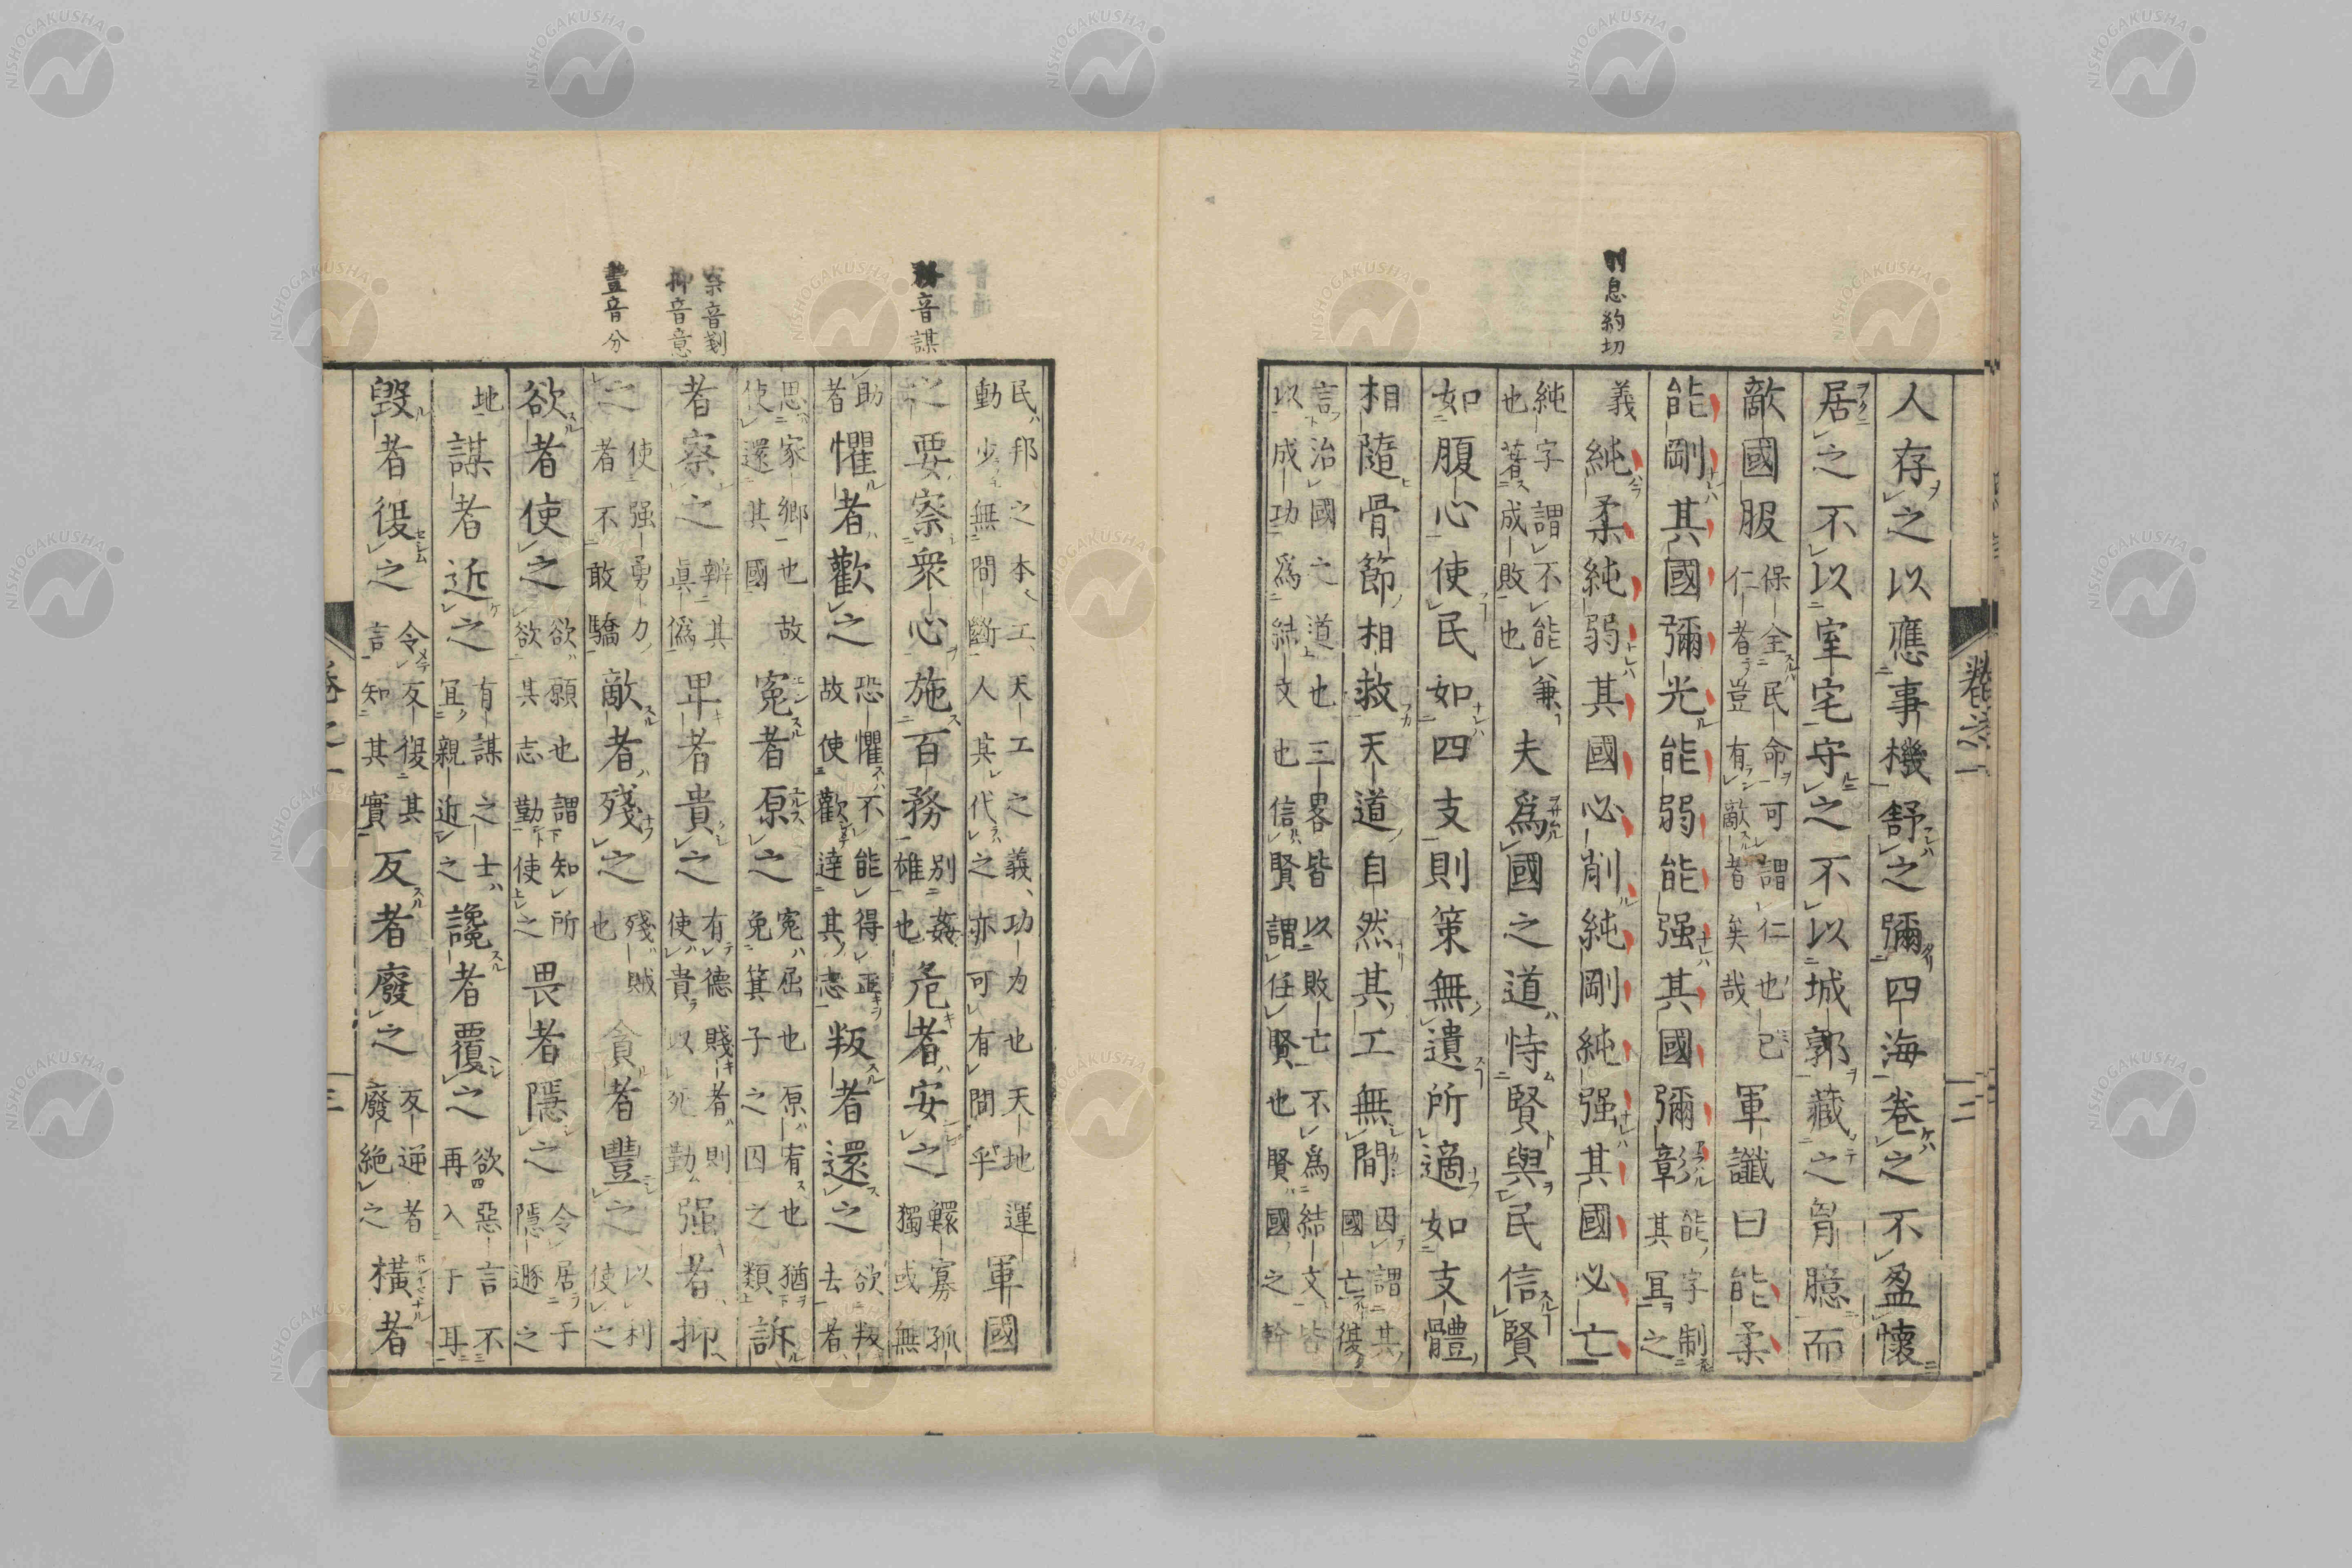 削息約切
卷之一 二
人存之以應事機舒之彌四海卷之不盈懷
居之不以室宅守之不以城郭藏之胷臆而
敵國服 保全民命可謂仁也已 仁者豈有敵者矣哉 軍讖曰能柔
能剛其國彌光能弱能强其國彌彰 能字制 其宜之
義 純柔純弱其國必削純剛純强其國必亡
純字謂不能兼 也著成敗也 夫爲國之道恃賢與民信賢
如腹心使民如四支則策無遺所適如支體
相隨骨節相救天道自然其工無間 因謂其 國亡復
言治國之道也三畧皆以敗亡不爲結文皆
以成功爲結文也信賢謂任賢也賢國之幹
務音謀
察音剗
抑音意
豐音分
民邦之本工天工之義功力也天地運 動少無間斷人其代之亦可有間乎 軍國
之要察衆心施百務 別姦 雄也 危者安之 鰥寡孤 獨或無
助 者 懼者歡之 恐懼不能得正 故使歡達其志 叛者還之 欲叛 去者
思家鄕也故 使還其國 寃者原之 寃屈也原宥也猶 免箕子之囚之類 訴
者察之 辨其 眞僞 卑者貴之 有德賤者則 使貴以死勤 强者抑
之 使强勇力 者不敢驕 敵者殘之 殘賊 也 貪者豐之 以利 使之
欲者使之 欲願也謂知所 欲其志勤使之 畏者隱之 令居于 隱遯之
地 謀者近之 有謀之士 宜親近之 讒者覆之 欲惡言不 再入于耳
毀者復之 令反復其 言知其實 反者廢之 反逆者 廢絶之 橫者
卷之一 三
NISHOGAKUSHA